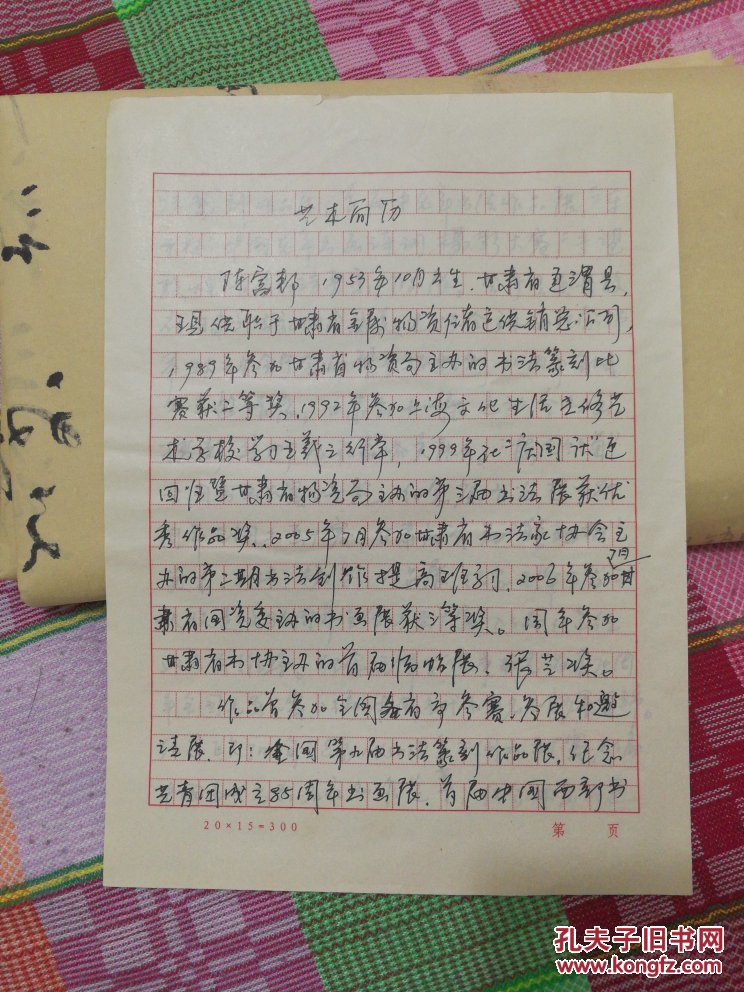 艺术简历
陈富邦 1953年10月出生，甘肃省通渭县，
现供职于甘肃省金属物资储运供销总公司，
1989年参加甘肃省物资局主办的书法篆刻比
赛获二等奖，1992年参加上海文化生活进修艺
术学校学习王羲之行草，1999年在"庆国庆"迎
回归暨甘肃省物资局主办的第三届书法展获优
秀作品奖、2005年7月参加甘肃省书法家协会主
办的第二期书法创作提高班学习，2006年参加甘
肃省国资委主办的书画展获三等奖。同年参加
甘肃省书协主办的首届临帖展、张芝奖。
作品曾参加全国各省市参赛、参展和邀
请展，即：全国第九届书法篆刻作品展，纪念
共青团成立85周年书画展，首届中国西部书
20×15=300
第 页
孔夫子旧书网
www.kongfz.com